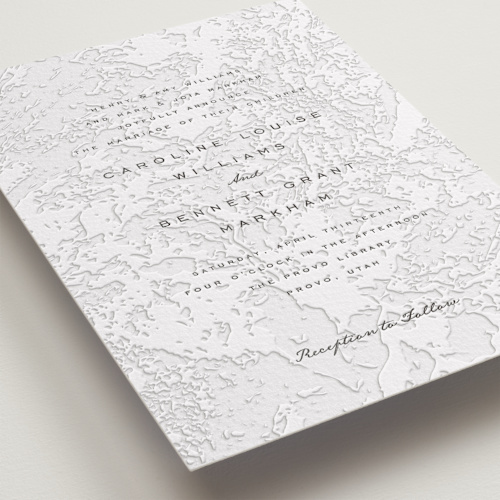 HENRY & AMY WILLIAMS
AND MARK & JOIA MARKHAM
JOYFULLY ANNOUNCE
THE MARRIAGE OF THEIR CHILDREN
CAROLINE LOUISE
WILLIAMS
And
BENNETT GRANT
MARKHAM
SATURDAY, APRIL THIRTEENTH
FOUR O'CLOCK IN THE AFTERNOON
THE PROVO LIBRARY
PROVO, UTAH
Reception to Follow